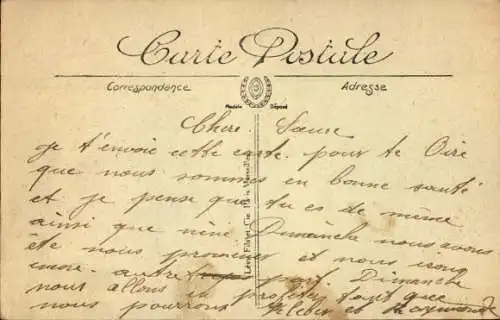 Carte Postale
Correspondance
Adresse
Modèle Déposé
Chere Sœure
je t'envoie cette carte pour te Dire
que nous sommes en bonne santé
et je pense que tu es de même
ainsi que Dimanche nous avons
éte nous promener et nous irons
autre part. Dimanche
nous allons en profiter tant que
nous pourrons Kleber et Raymond